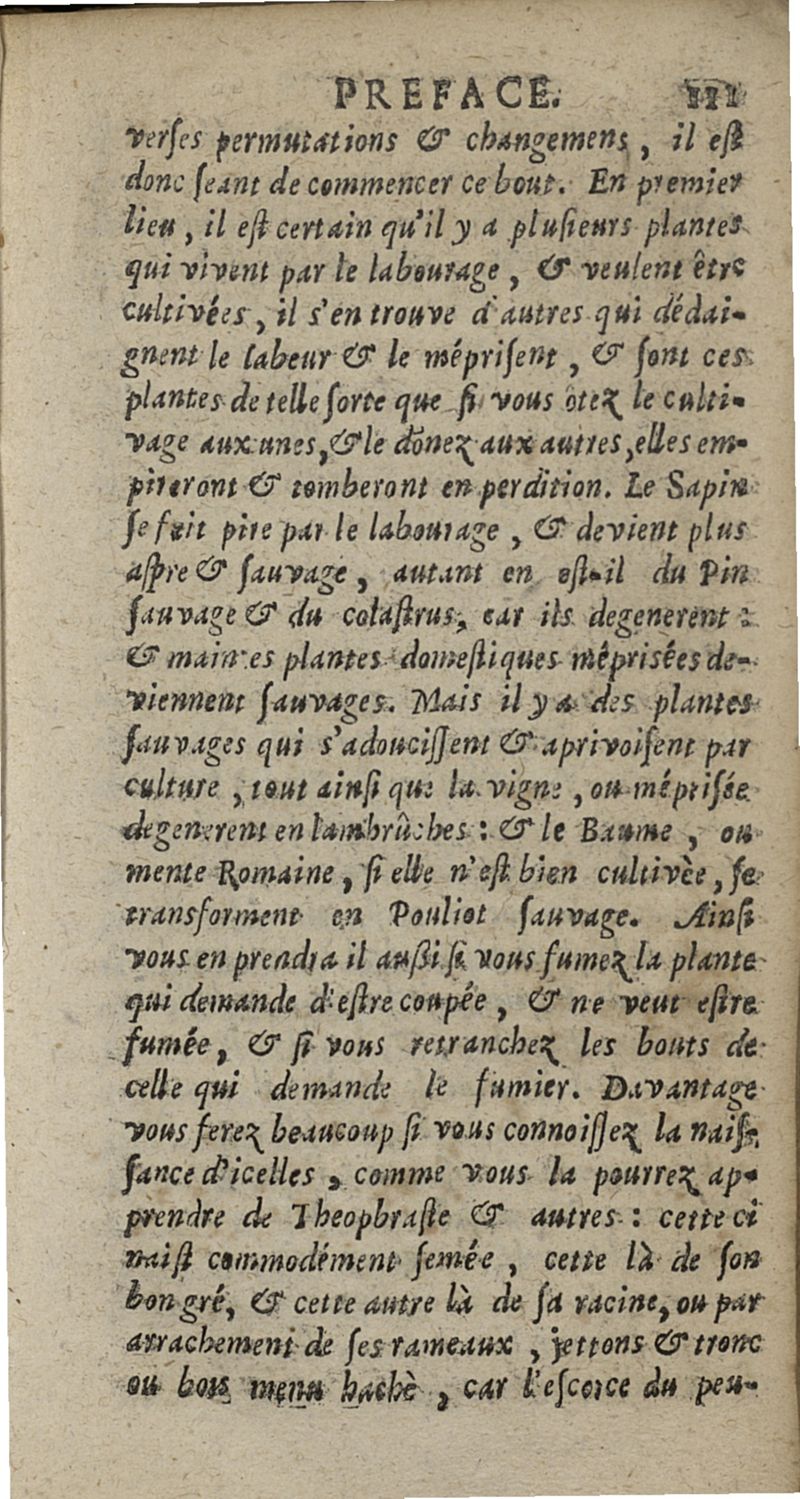 PREFACE. III
verſes permutations & changemens, il eſt
donc ſeant de commencer ce bout. En premier
lieu, il eſt certain qu'il y a pluſieurs plantes
qui vivent par le labourage, & veulent être
cultivées, il s'en trouve d'autres qui dédai-
gnent le labeur & le mépriſent, & ſont ces
plantes de telle ſorte que ſi vous otez le culti-
vage aux unes, & le donez aux autres, elles em-
pireront & tomberont en perdition. Le Sapin
ſe fait pire par le labourage, & devient plus
aſpre & ſauvage, autant en eſt-il du Pin
ſauvage & du colaſtrus, car ils degenerent :
& maintes plantes domeſtiques mépriſées de-
viennent ſauvages. Mais il y a des plantes
ſauvages qui s'adouciſſent & aprivoiſent par
culture, tout ainſi que la vigne, ou mépriſée
degenerent en lambrûches : & le Baume, ou
mente Romaine, ſi elle n'eſt bien cultivèe, ſe
transforment en Pouliot ſauvage. Ainſi
vous en prendra il auſſi ſi vous fumez la plante
qui demande d'eſtre coupée, & ne veut eſtre
fumée, & ſi vous retranchez les bouts de
celle qui demande le fumier. Davantage
vous ferez beaucoup ſi vous connoiſſez la naiſ-
ſance d'icelles, comme vous la pourrez ap-
prendre de Theophraſte & autres : cette ci
naiſt commodément ſemée, cette là de ſon
bon gré, & cette autre là de ſa racine, ou par
arrachement de ſes rameaux, jettons & tronc
ou bois menu hachè, car l'eſcorce du peu-